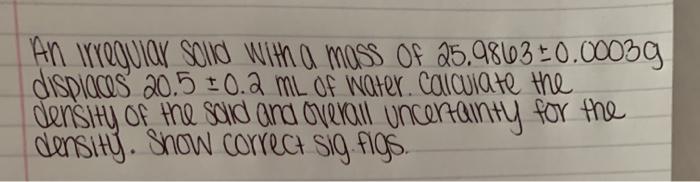 An irregular solid with a mass of 25.9863±0.0003g
displaces 20.5 ±0.2 mL of water. Calculate the
density of the solid and overall uncertainty for the
density. Show correct sig.figs.